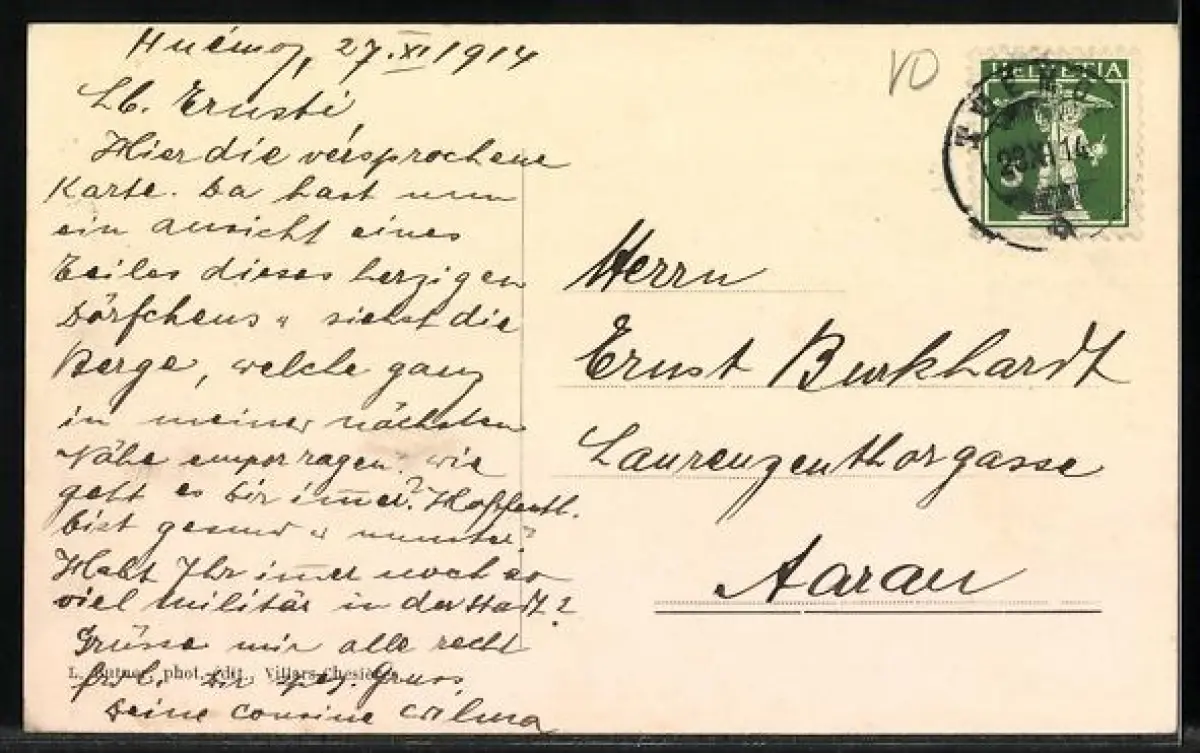 Huémoz, 27. XI 1914
Lb. Ernsti,
Hier die versprochene
Karte. Da hast nun
ein ansicht eines
Teiles dieses herzigen
Dörfchens u siehst die
Berge, welche ganz
in meiner nächsten
Nähe emporragen. wie
geht es Dir im̅er? Hoffentl.
bist gesund u munter?
Habt Ihr im̅er noch so
viel Militär in der Stadt?
Grüsse mir alle recht
frdl. Dir spez. Gruss,
Deine Cousine Wilma
L. Butner, phot.-édit., Villars-Chesières
VO
HELVETIA
HUÉMOZ
28 XI 14
5
Herrn
Ernst Burkhardt
Laurenzenthorgasse
Aarau